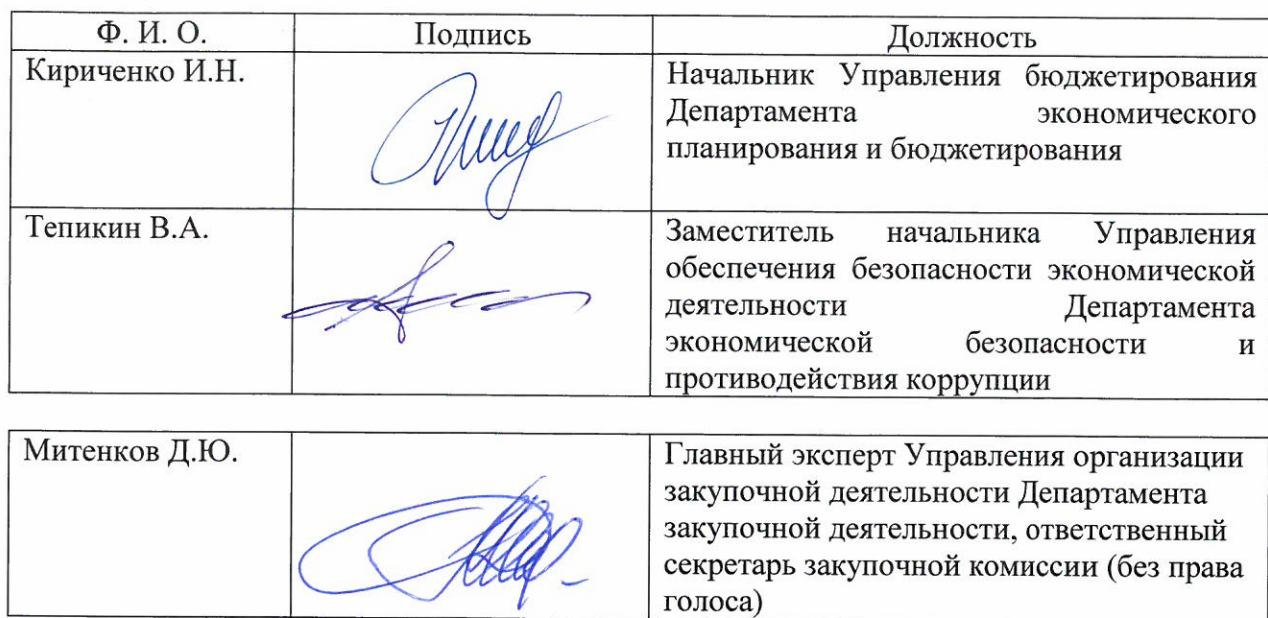 Ф. И. О.
Подпись
Должность
Кириченко И.Н.
Начальник Управления бюджетирования
Департамента экономического
планирования и бюджетирования
Тепикин В.А.
Заместитель начальника Управления
обеспечения безопасности экономической
деятельности Департамента
экономической безопасности и
противодействия коррупции
Митенков Д.Ю.
Главный эксперт Управления организации
закупочной деятельности Департамента
закупочной деятельности, ответственный
секретарь закупочной комиссии (без права
голоса)